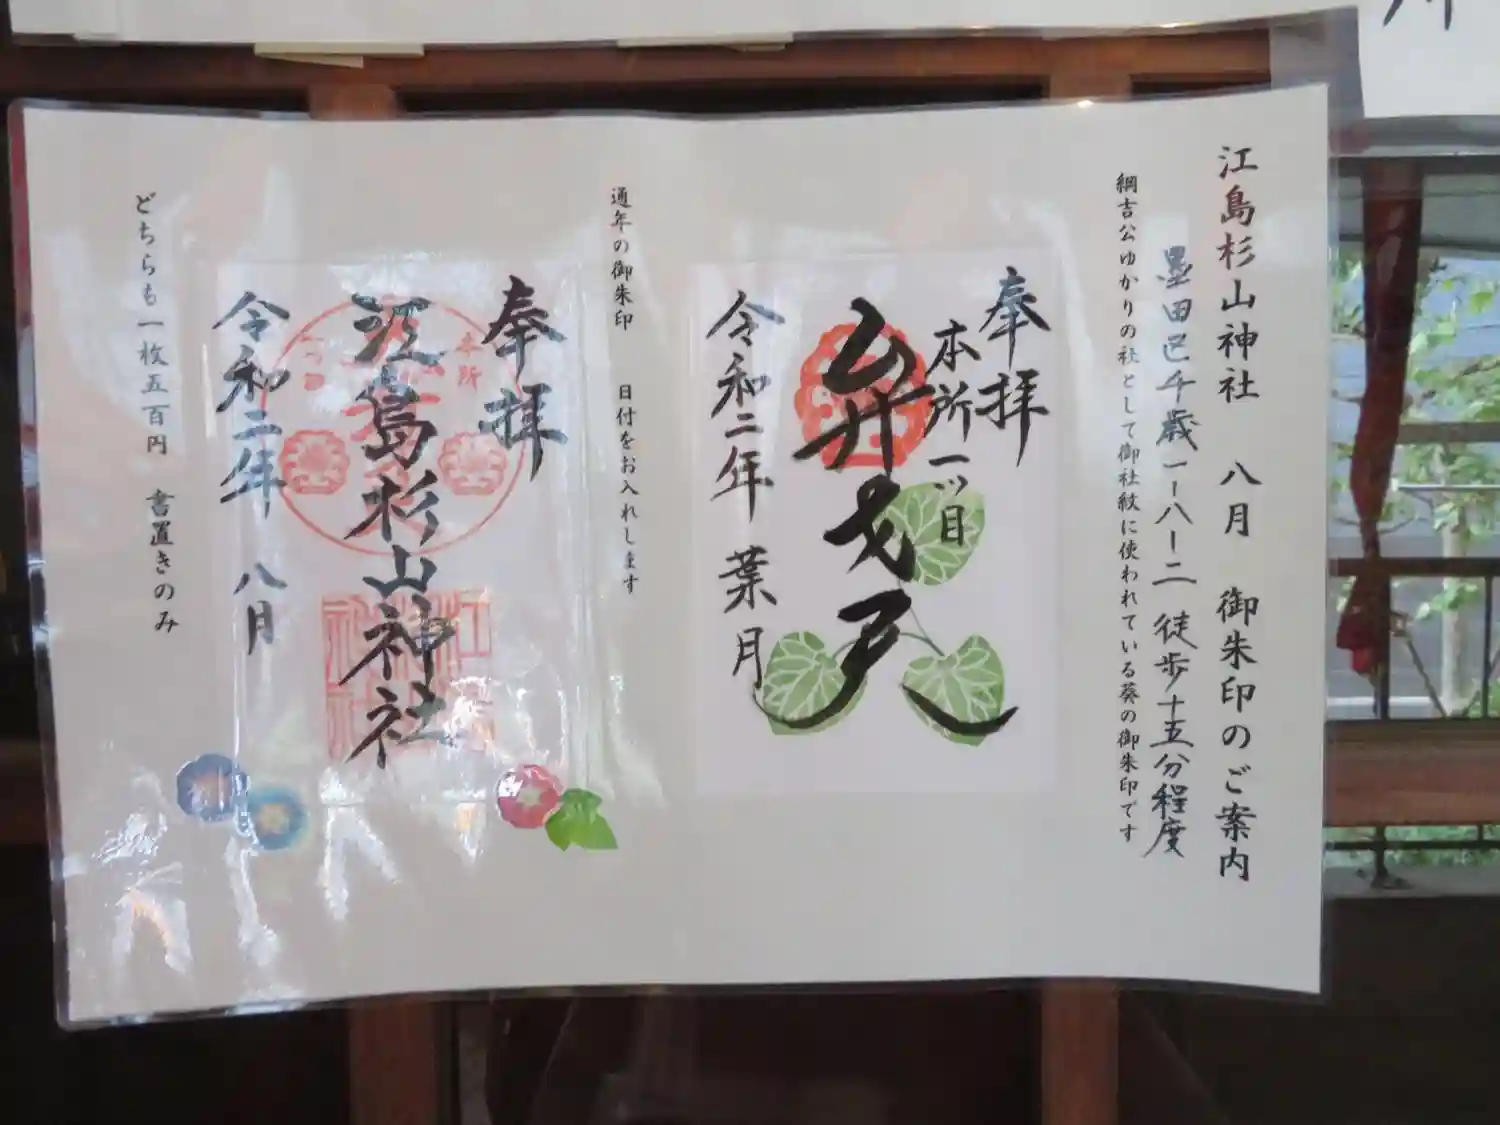 江島杉山神社 八月 御朱印のご案内
墨田区千歳一ー八ー二 徒歩十五分程度
綱吉公ゆかりの社として御社紋に使われている葵の御朱印です
奉拝
本所一ッ目
令和二年 葉月
通年の御朱印 日付をお入れします
奉拝
本所
一つ目
江島杉山神社
令和二年 八月
どちらも一枚五百円 書置きのみ